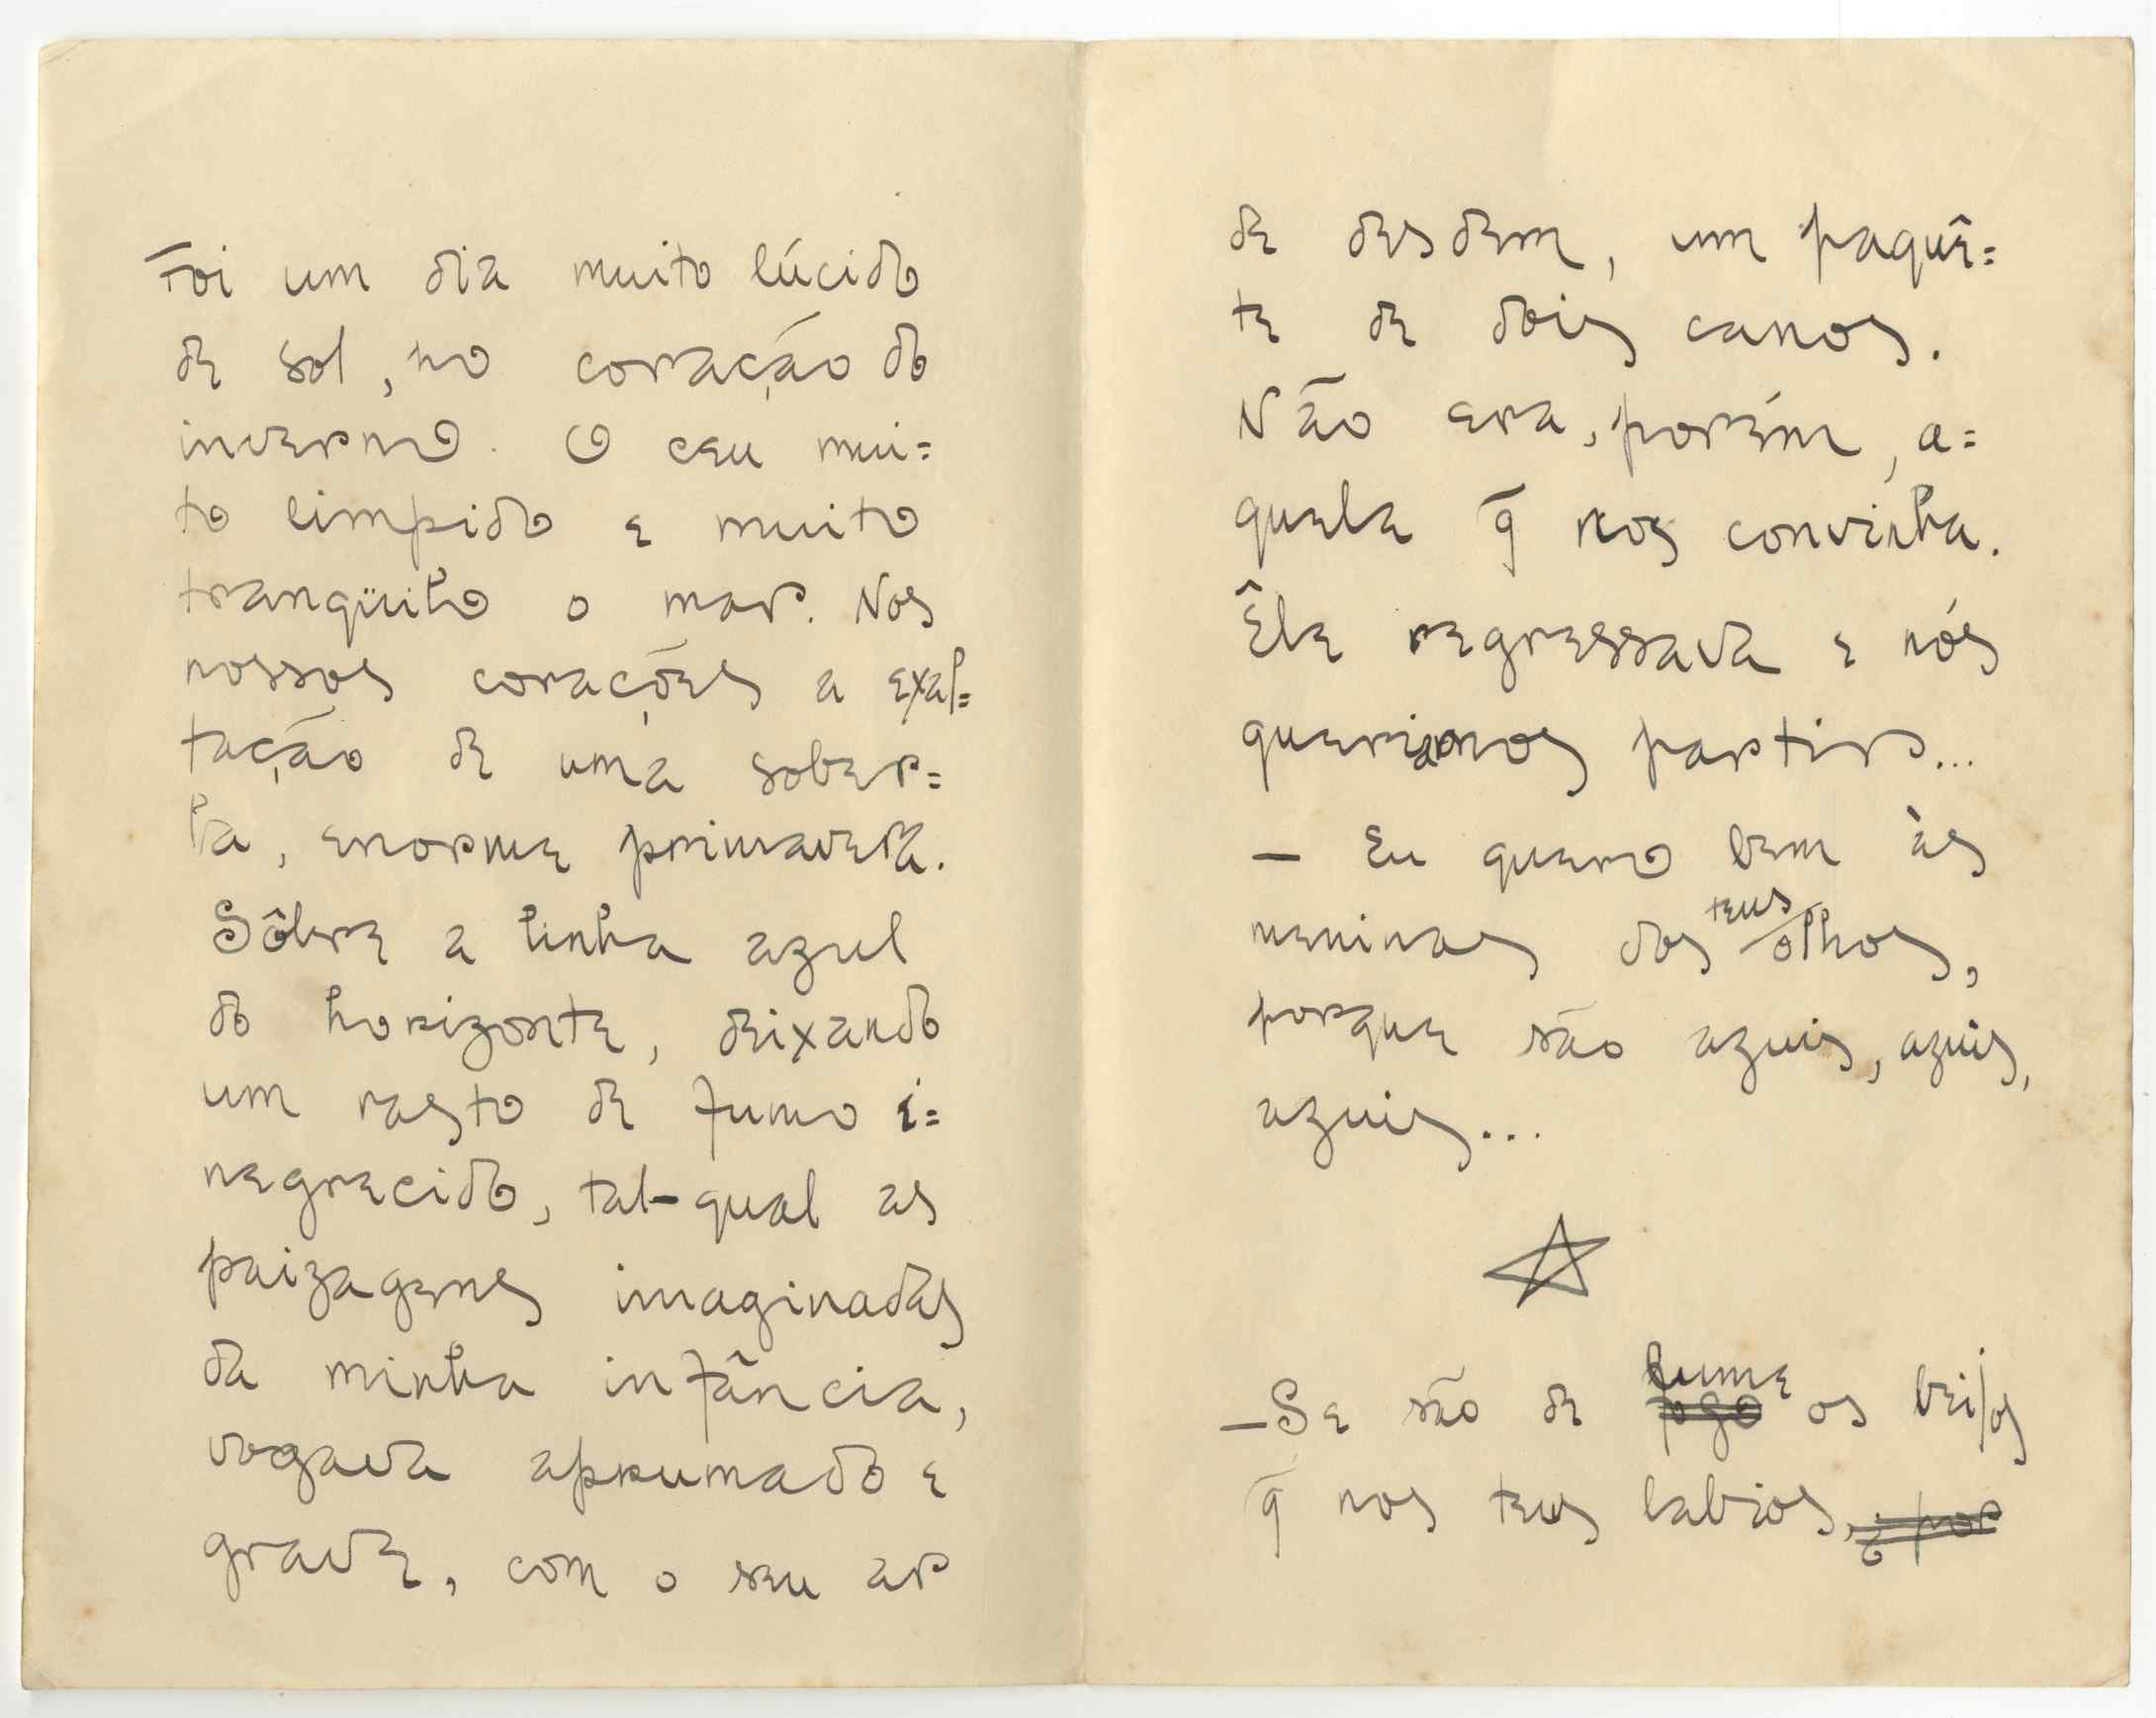 Foi um dia muito lúcido
de sol, no coração do
inverno. O ceu mui=
to limpido e muito
tranqüilo o mar. Nos
nossos corações a exal=
tação de uma sober=
ba, enorme primavera.
Sôbre a linha azul
do horizonte, deixando
um rasto de fumo e=
negrecido, tal-qual as
paizagens imaginadas
da minha infância,
vogava aprumado e
grave, com o seu ar
de desdem, um paquê=
te de dois canos.
Não era, porém, a=
quele q̃ nos convinha.
Êle regressava e nós
queriamos partir...
— Eu quero bem às
meninas dos teus olhos,
porque são azuis, azuis,
azuis...
— Se são de fogo lume os beijos
q̃ nos teus labios, e por